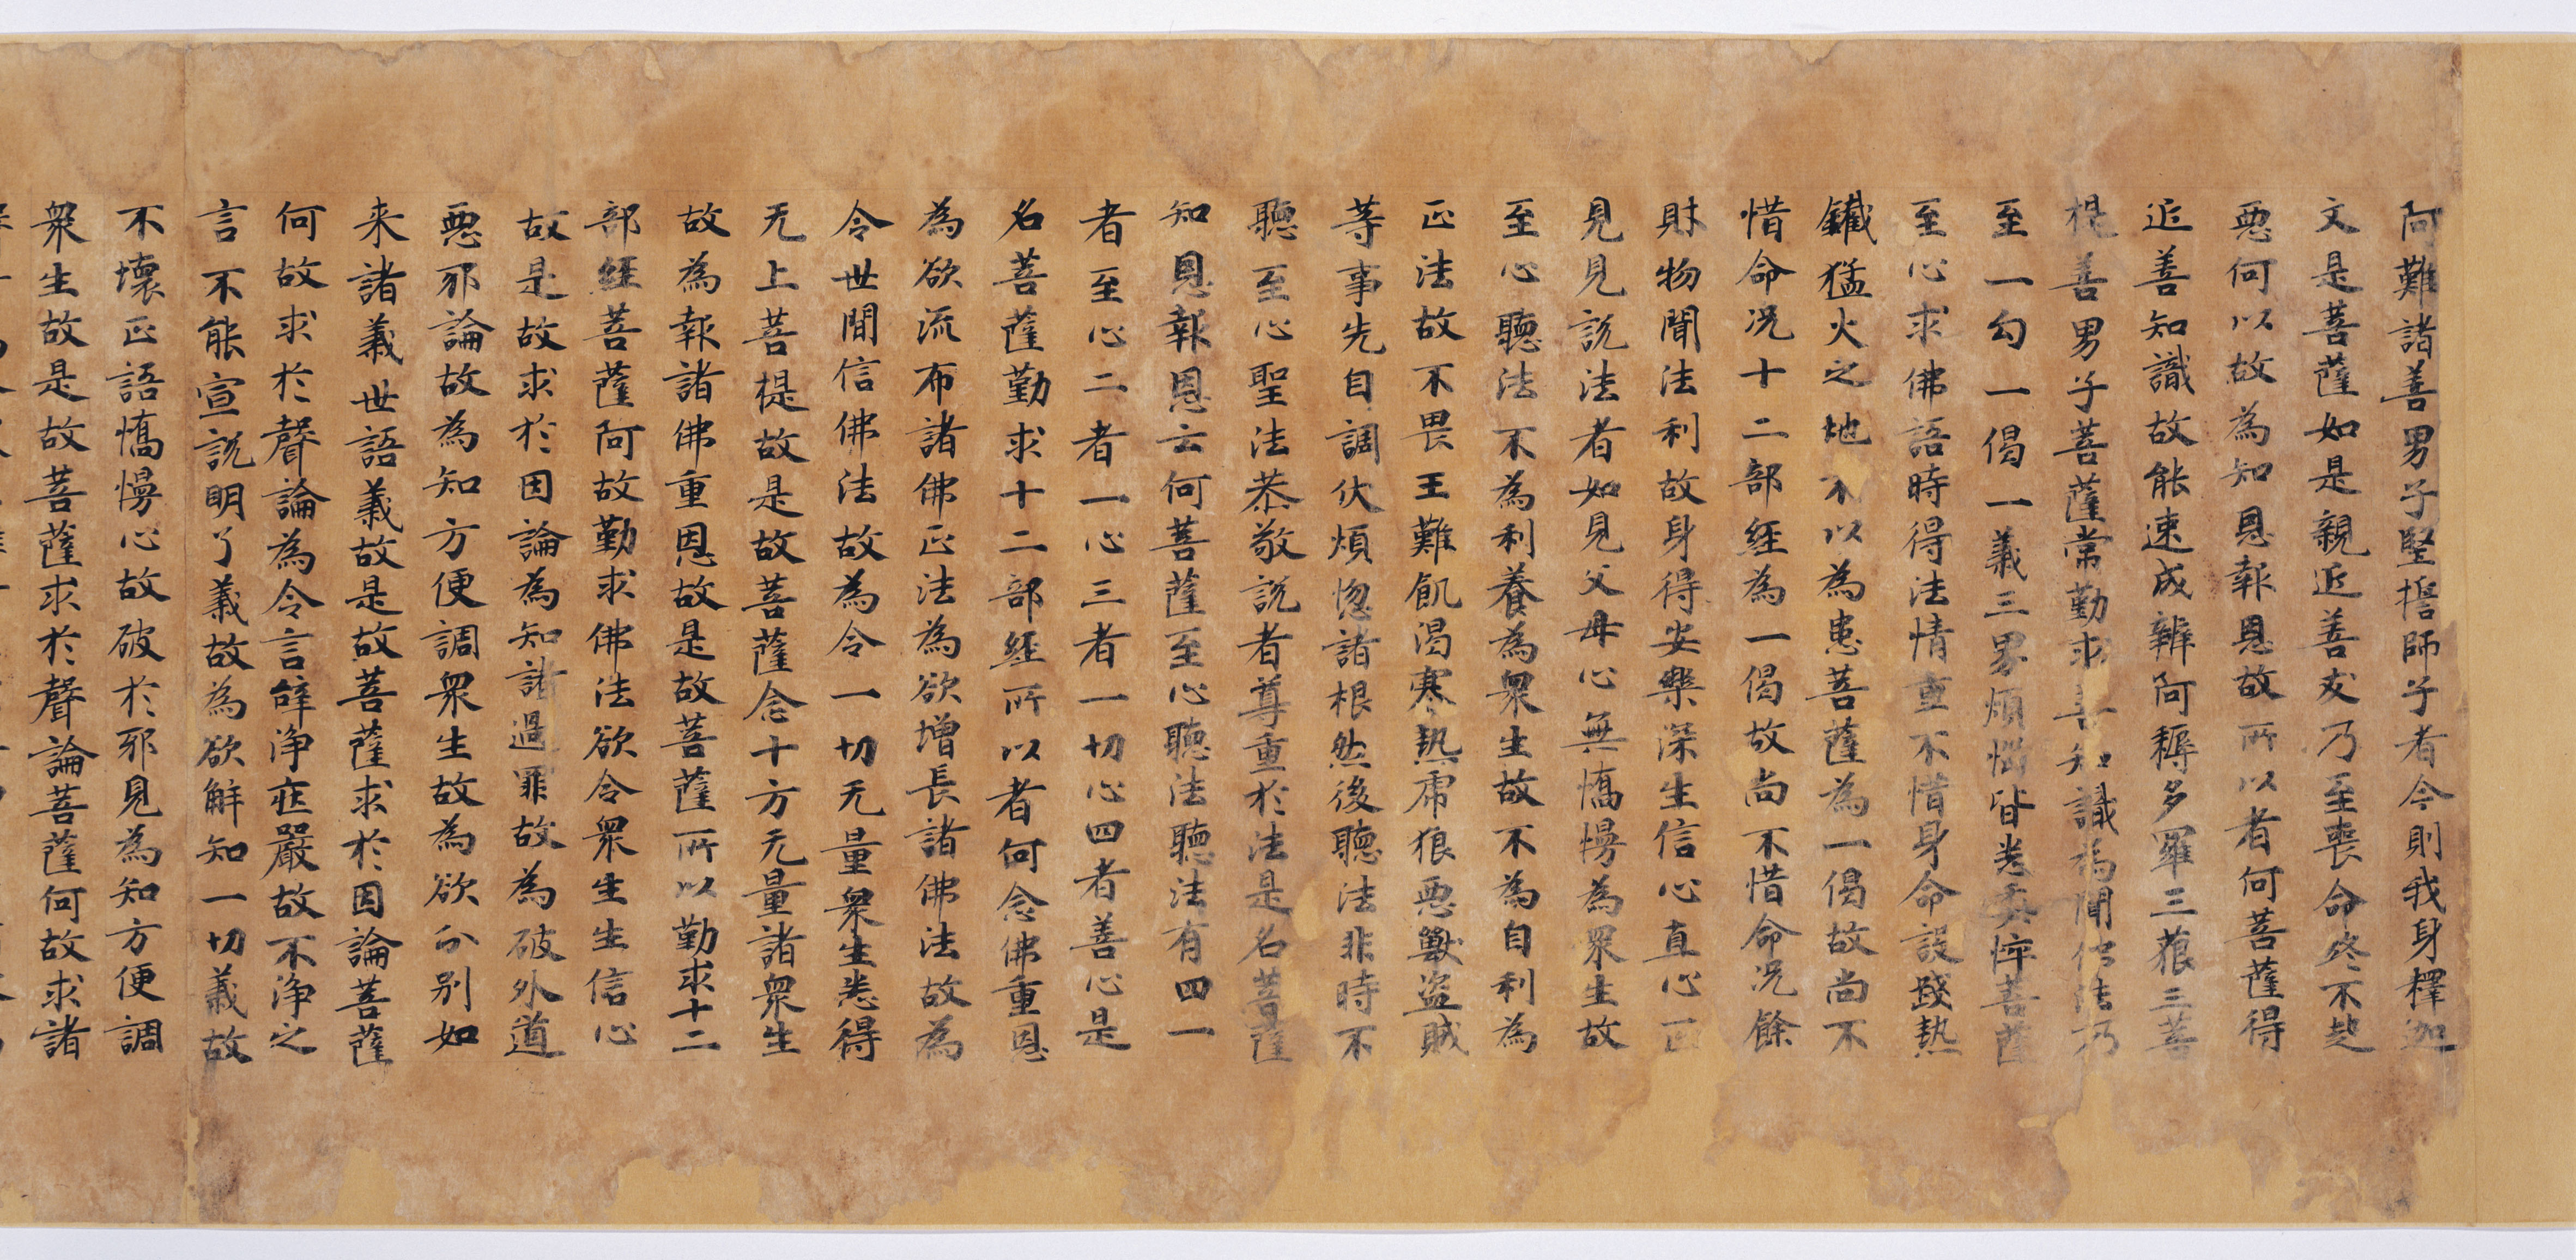 阿難諸善男子堅擔師子者今則我身釋迦
文是菩薩如是親近善友乃至喪命終不起
惡何以故為知恩報恩故所以者何菩薩得
近善知識故能速成辦阿耨多羅三藐三菩
提善男子菩薩常勤求善知識為聞佛法乃
至一句一偈一義三界煩惱皆悉萎悴菩薩
至心求佛語時得法情重不惜身命設踐熱
鐵猛火之地不以為患菩薩為一偈故尚不
惜命况十二部經為一偈故尚不惜命况餘
財物聞法利故身得安樂深生信心直心正
見見說法者如見父母心無憍慢為眾生故
至心聽法不為利養為眾生故不為自利為
正法故不畏王難飢渴寒熱虎狼惡獸盜賊
等事先自調伏煩惚諸根然後聽法非時不
聽至心聖法恭敬說者尊重於法是名菩薩
知恩報恩云何菩薩至心聽法聽法有四一
者至心二者一心三者一切心四者善心是
名菩薩勤求十二部經所以者何念佛重恩
為欲流布諸佛正法為欲增長諸佛法故為
令世間信佛法故為令一切无量眾生悉得
无上菩提故是故菩薩念十方无量諸眾生
故為報諸佛重恩故是故菩薩所以勤求十二
部經菩薩阿故勤求佛法欲令眾生生信心
故是故求於因論為知諸過罪故為破外道
惡邪論故為知方便調眾生故為欲分別如
来諸義世語義故是故菩薩求於因論菩薩
何故求於聲論為令言辞淨莊嚴故不淨之
言不能宣說明了義故為欲解知一切義故
不壞正語憍慢心故破於邪見為知方便調
眾生故是故菩薩求於聲論菩薩何故求諸